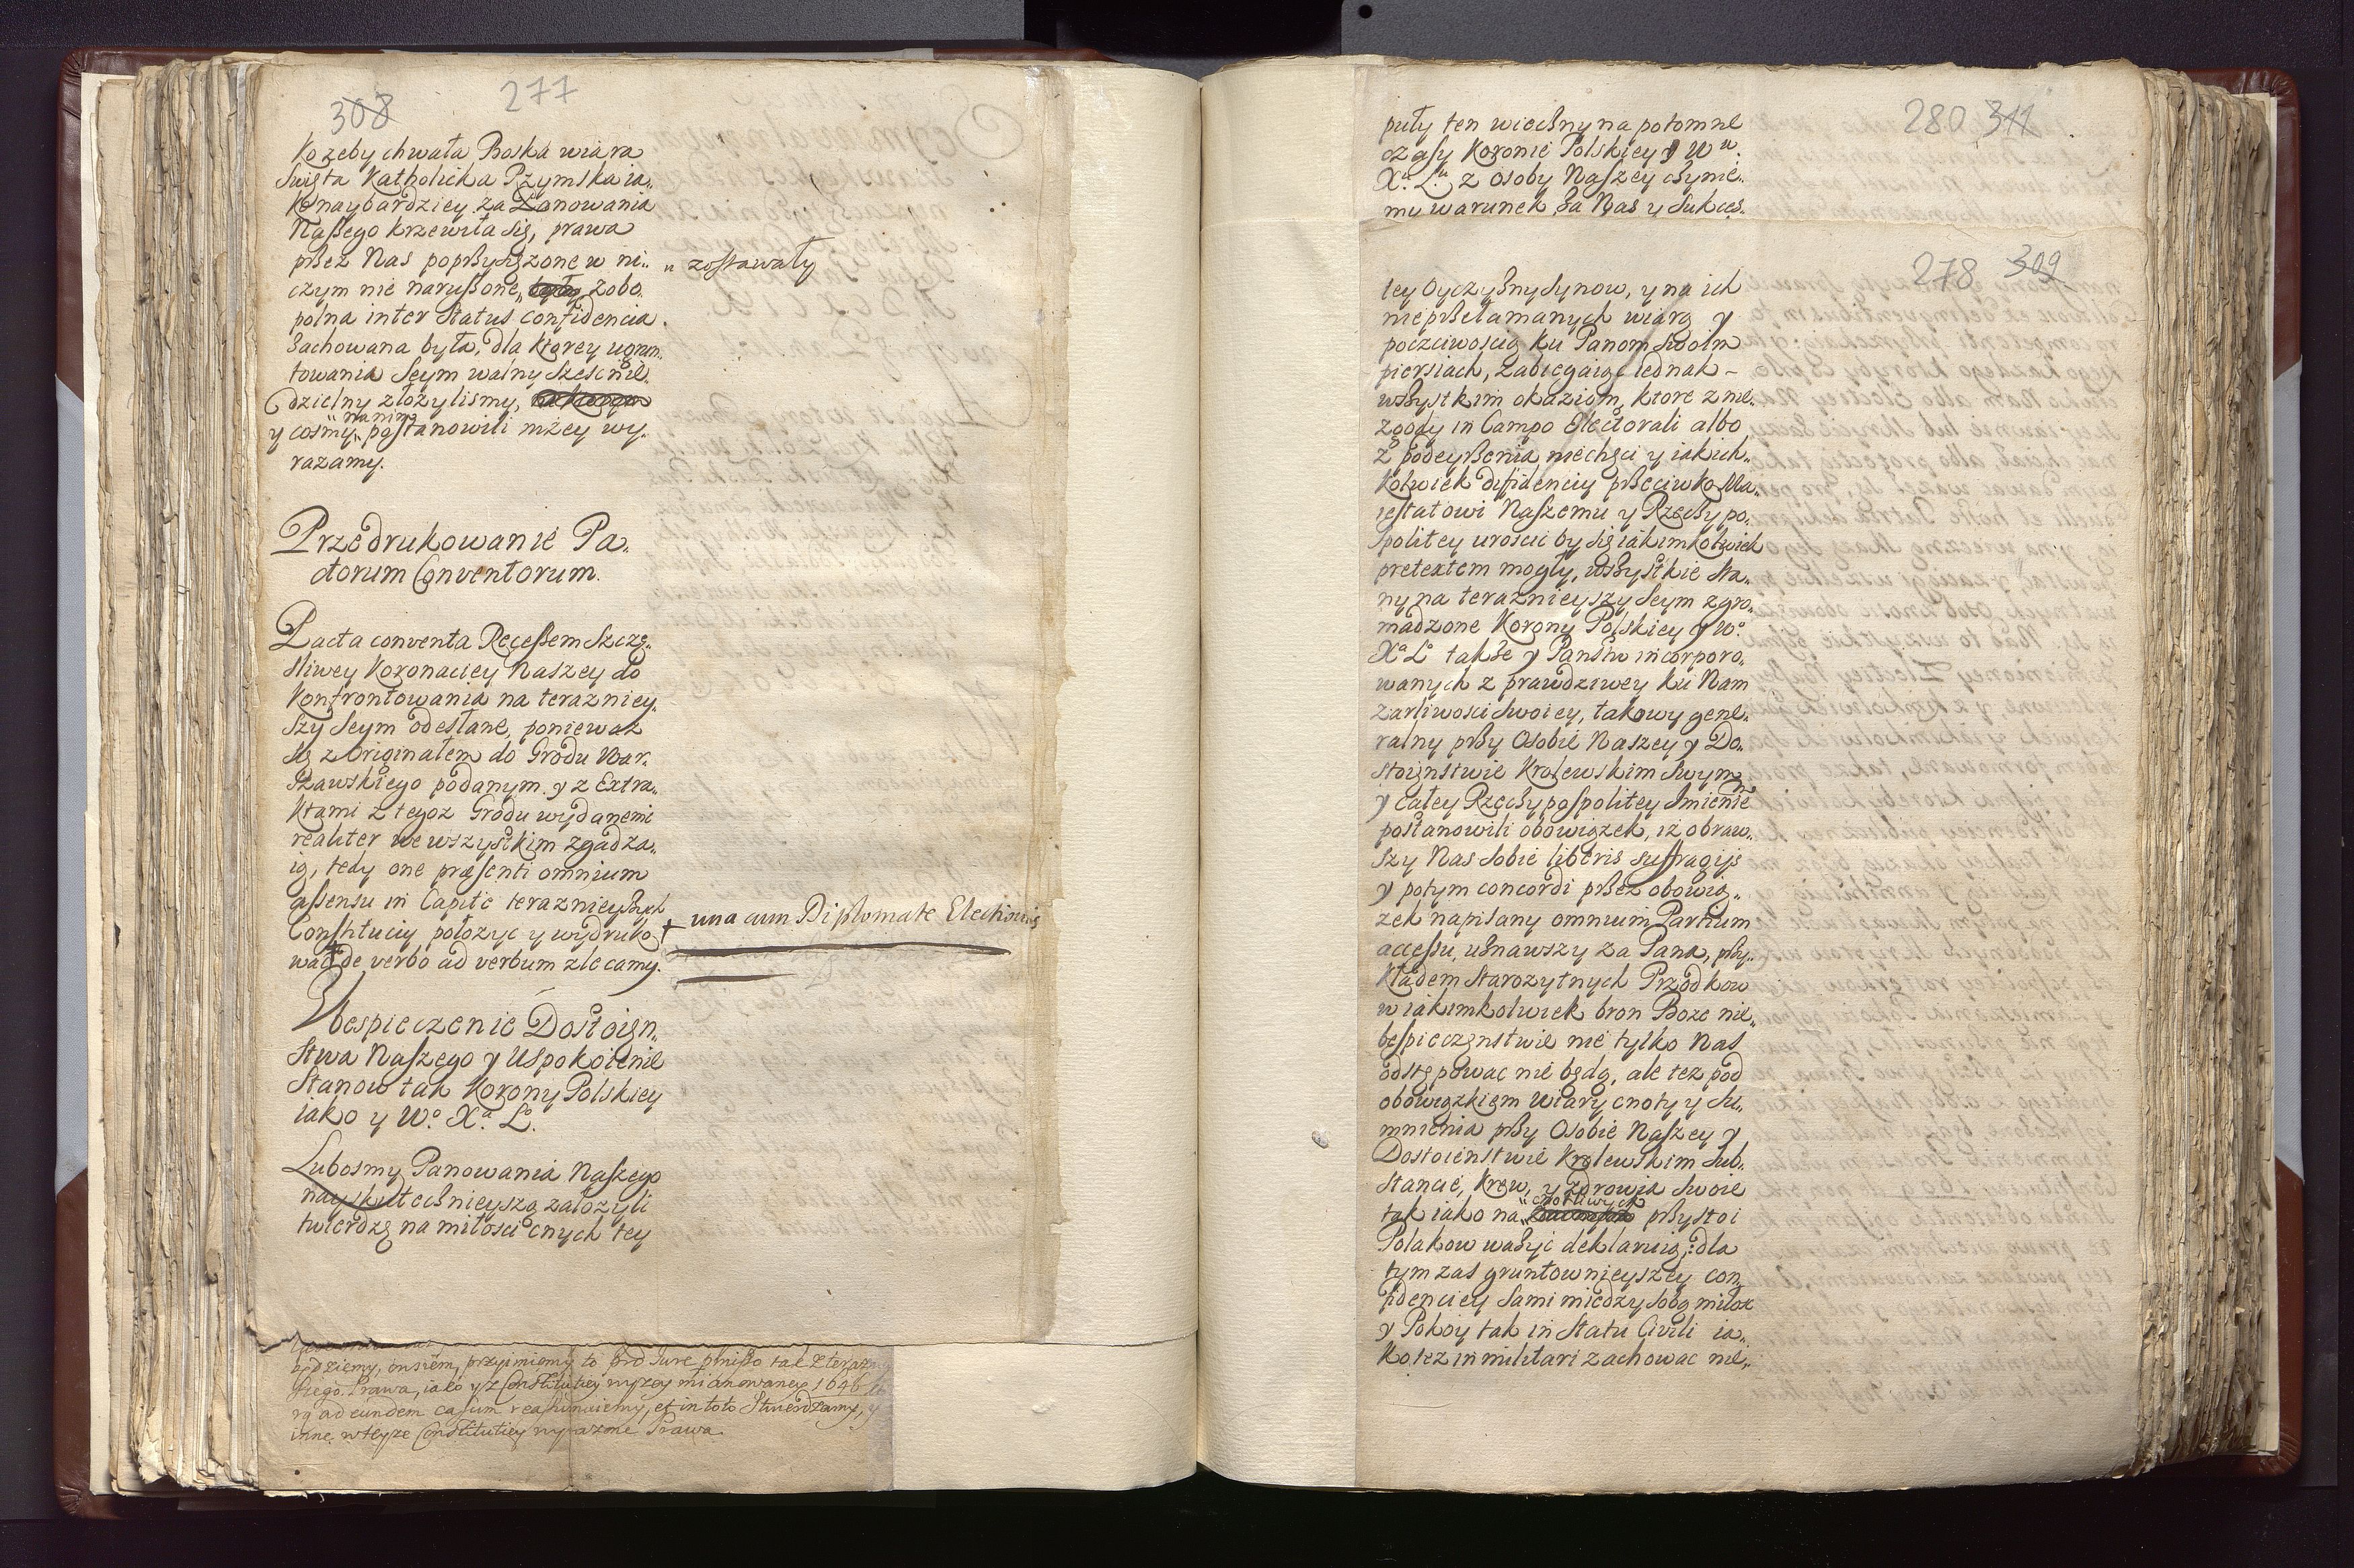 308 277
Ko zeby chwała Boska wiara
Swięta Katholicka Rzymska ia„
K naybardziey za Panowania
Naszego krzewiła się, prawa
przez Nas poprzysiężone w ni„
czym nie naruszone„ zobo„
„ zostawały
polna inter Status confidencia
Zachowana była, dla ktorey ugrun„
towania Seym walny sześć nie„
dzielny złożylismy,
y cosmy „na nim„ postanowili niżey wy„
razamy.
Przedrukowanie Pa„
ctorum Conventorum.
Pacta conventa Recessem Szczę„
sliwey Koronaciey Naszey do
Konfrontowania na terazniey„
szy Seym odesłane, ponieważ
się z Originałem do Grodu War„
szawskiego podanym y z Extra„
ktami z tegoz Grodu wydanemi
realiter we wszystkim zgadza„
ią, tedy one præsenti omnium
assensu in Capite teraznieyszych
Constituciy położyc y wydruko„
+ una cum Diplomate Electionis
wać + de verbo ad verbum zlecamy.
Ubespieczenie Dostoien„
stwa Naszego y Uspokoienie
Stanow tak Korony Polskiey
iako y Wo. Xa. Lo.
Lubosmy Panowania Naszego
nayskutecznieyszą założyli
twierdzę na miłosci cnych tey
będziemy, onsiem, przyimiemy to pro Jure
Prawa, iako y z Constitutiey wyzey mianowaney 1646
rą ad eundem casum reassumuiemy, et in toto Stwierdzamy, y
inne w teyze Constitutiey wyrazone Prawa.
280 311
puły ten wieczny na potomne
czasy Koronie Polskiey y Wu.
Xu. Lu. z osoby Naszey czynie„
my warunek za Nas y Sukces„
278 309
tey Oyczyzny Synow, y na ich
nieprzełamanych wiarą y
poczciwoscią ku Panom swoim
piersiach, zabiegaiąc iednak –
wszystkim okaziom, ktore z nie„
zgody in Campo Electorali albo
z podeyrzenia niechęci y iakich„
kolwiek difidenciy przeciwko Ma„
iestatowi Naszemu y Rzeczypo„
spolitey uroscic by się iakimkolwiek
pretextem mogły, wszystkie sta„
ny na teraznieyszy Seym zgro„
madzone Korony Polskiey y Wo.
Xa Lo także y Państw incorporo„
wanych z prawdziwey ku Nam
żarliwosci swoiey, takowy gene„
ralny przy Osobie Naszey y Do„
stoienstwie Krolewskim swym
y całey Rzeczypospolitey Imieniem
postanowili obowiązek, iż obraw„
szy Nas sobie liberis suffragijs
y potym concordi przez obowią„
zek napisany omnium Partium
accessu, uznawszy za Pana, przy„
kładem starożytnych Przodkow
w iakimkolwiek bron Boze nie„
bespieczenstwie nie tylko Nas
odstępować nie będą, ale tez pod
obowiązkiem wiary cnoty y su„
mnienia przy Osobie Naszey y
Dostoienstwie Krolewskim sub„
stancie, krew, y zdrowia swoie
tak iako na „cnotliwych przystoi
Polakow ważyć deklaruią: dla
tym zas gruntownieyszey con„
fidenciey sami między sobą miłość
y Pokoy tak in Statu Civili ia„
ko tez in militari zachować nie„